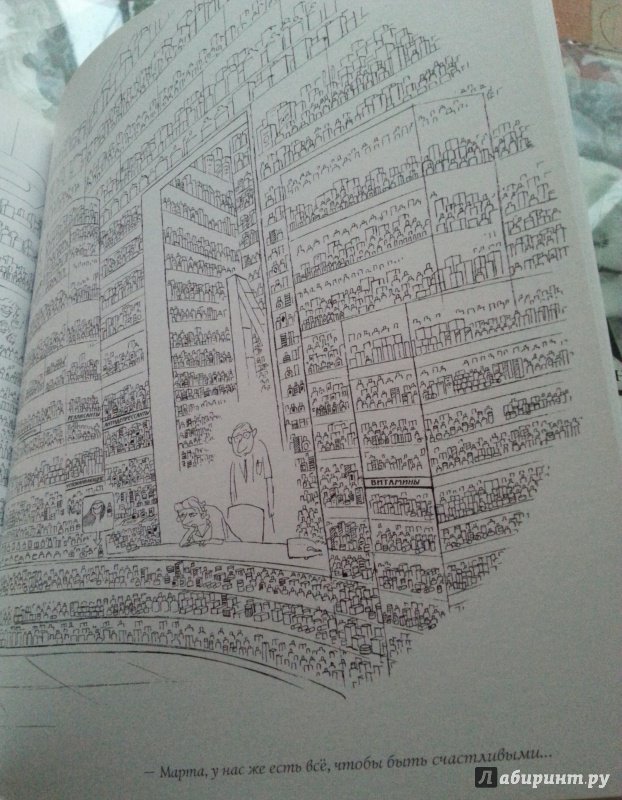 АНТИДЕПРЕССАНТЫ
ВИТАМИНЫ
— Марта, у нас же есть всё, чтобы быть счастливыми...
Лабиринт.ру